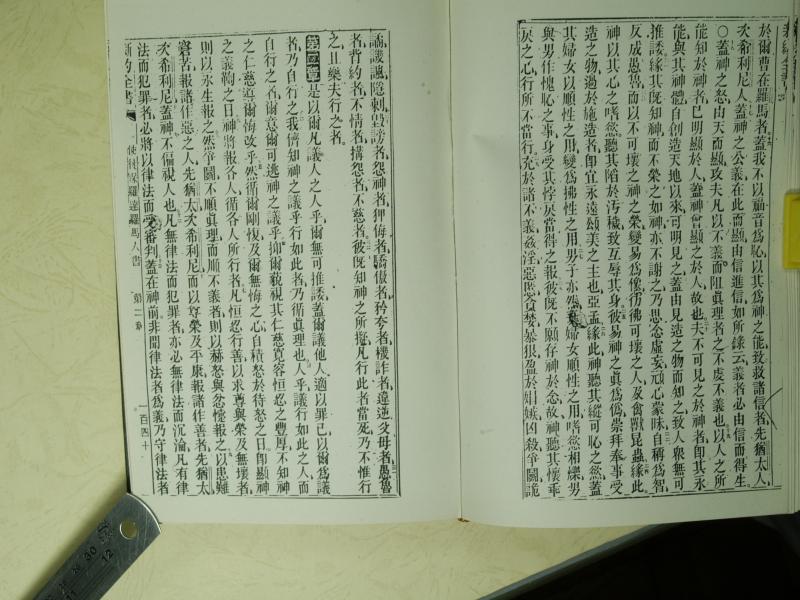 於爾曹在羅馬者蓋我不以福音爲恥以其爲神之能致救諸信者先猶太人
次希利尼人蓋神之公義在此而顯由信進信如所錄云義者必由信而得生
○蓋神之怒由天而顯攻夫凡以不義而阻眞理者之不虔不義也以人之所
能知於神者已明顯於人蓋神曾顯之於人故也夫不可見之於神者卽其永
能與其神體自創造天地以來可明見之蓋由見造之物而知之致人衆無可
推諉緣其旣知神而不榮之如神亦不謝之乃思念虛妄頑心蒙昧自稱爲智
反成愚魯而以不可壞之神之榮變易爲像彷彿可壞之人及禽獸昆蟲緣此
神以其心之嗜慾聽其陷於汚穢致互辱其身彼易神之眞爲僞崇拜奉事受
造之物過於施造者卽宜永遠頌美之主也亞孟緣此神聽其縱可恥之慾蓋
其婦女以順性之用變爲拂性之用男子亦然婦女順性之用嗜慾相爍男
與男作愧恥之事身受其悖戾當得之報彼旣不願存神於念故神聽其懷乖
戾之心行所不當行充於諸不義姦淫惡慝貪婪暴狠盈於媢嫉凶殺爭鬭詭
譎譏讒隱刺毀謗者怨神者狎侮者驕傲者矜夸者機詐者違逆父母者愚魯
者背約者不情者搆怨者不慈者彼旣知神之所擬凡行此者當死乃不惟行
之且樂夫行之者
第二章是以爾凡議人之人乎爾無可推諉蓋爾議他人適以罪己以爾爲議
者乃自行之我儕知神之議乎行如此者乃循眞理也人乎議行如此之人而
自行之者爾意爾可逃神之議乎抑爾藐視其仁慈寬容恒忍之豐厚不知神
之仁慈導爾悔改乎然循爾剛愎及爾無悔之心自積怒於待怒之日卽顯神
之義鞫之日神將報各人循各人所行者凡恒忍行善以求尊與榮及無壞者
則以永生報之然爭鬭不順眞理而順不義者則以赫怒與忿懥報之以患難
窘苦報諸作惡之人先猶太次希利尼而以尊榮及平康報諸作善者先猶太
次希利尼蓋神不偏視人也凡無律法而犯罪者亦必無律法而沉淪凡有律
法而犯罪者必將以律法而受審判蓋在神前非聞律法者爲義乃守律法者
新約全書 使徒保羅達羅馬人書 第二章 一百四十